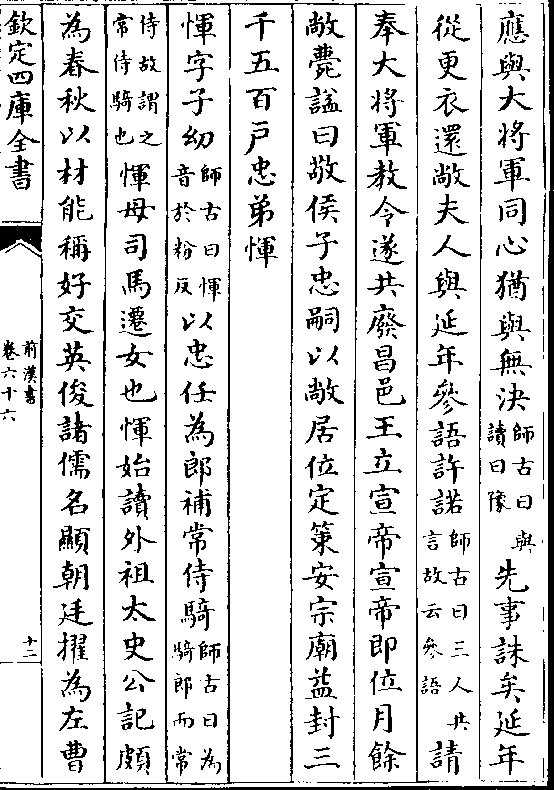 應與大將軍同心猶與無決師古曰與讀曰豫先事誅矣延年
從更衣還敞夫人與延年參語許諾師古曰三人共言故云參語請
奉大將軍教令遂共廢昌邑王立宣帝宣帝即位月餘
敞薨諡曰敬侯子忠嗣以敞居位定策安宗廟益封三
千五百戸忠弟惲
惲字子幼師古曰惲音於粉反以忠任為郎補常侍騎師古曰為騎郎而常
侍故謂之常侍騎也惲母司馬遷女也惲始讀外祖太史公記頗
為春秋以材能稱好交英俊諸儒名顯朝廷擢為左曹
欽定四庫全書
前漢書
卷六十六
十二